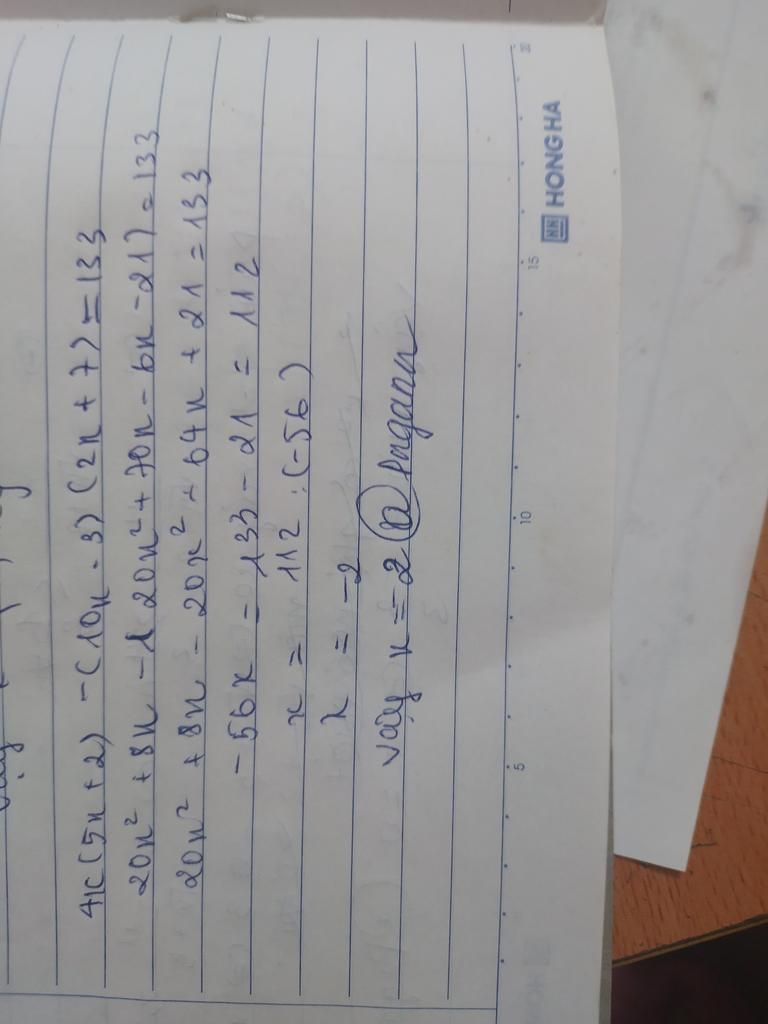 4x(5x+2) -(10x-3)(2x+7)=133
20x² +8x -(20x²+70x-6x-21)=133
20x² +8x - 20x² - 64x + 21 = 133
-56x = 133 - 21 = 112
x = 112 : (-56)
x = -2
Vậy x = -2
HONG HA
5 10 15 20